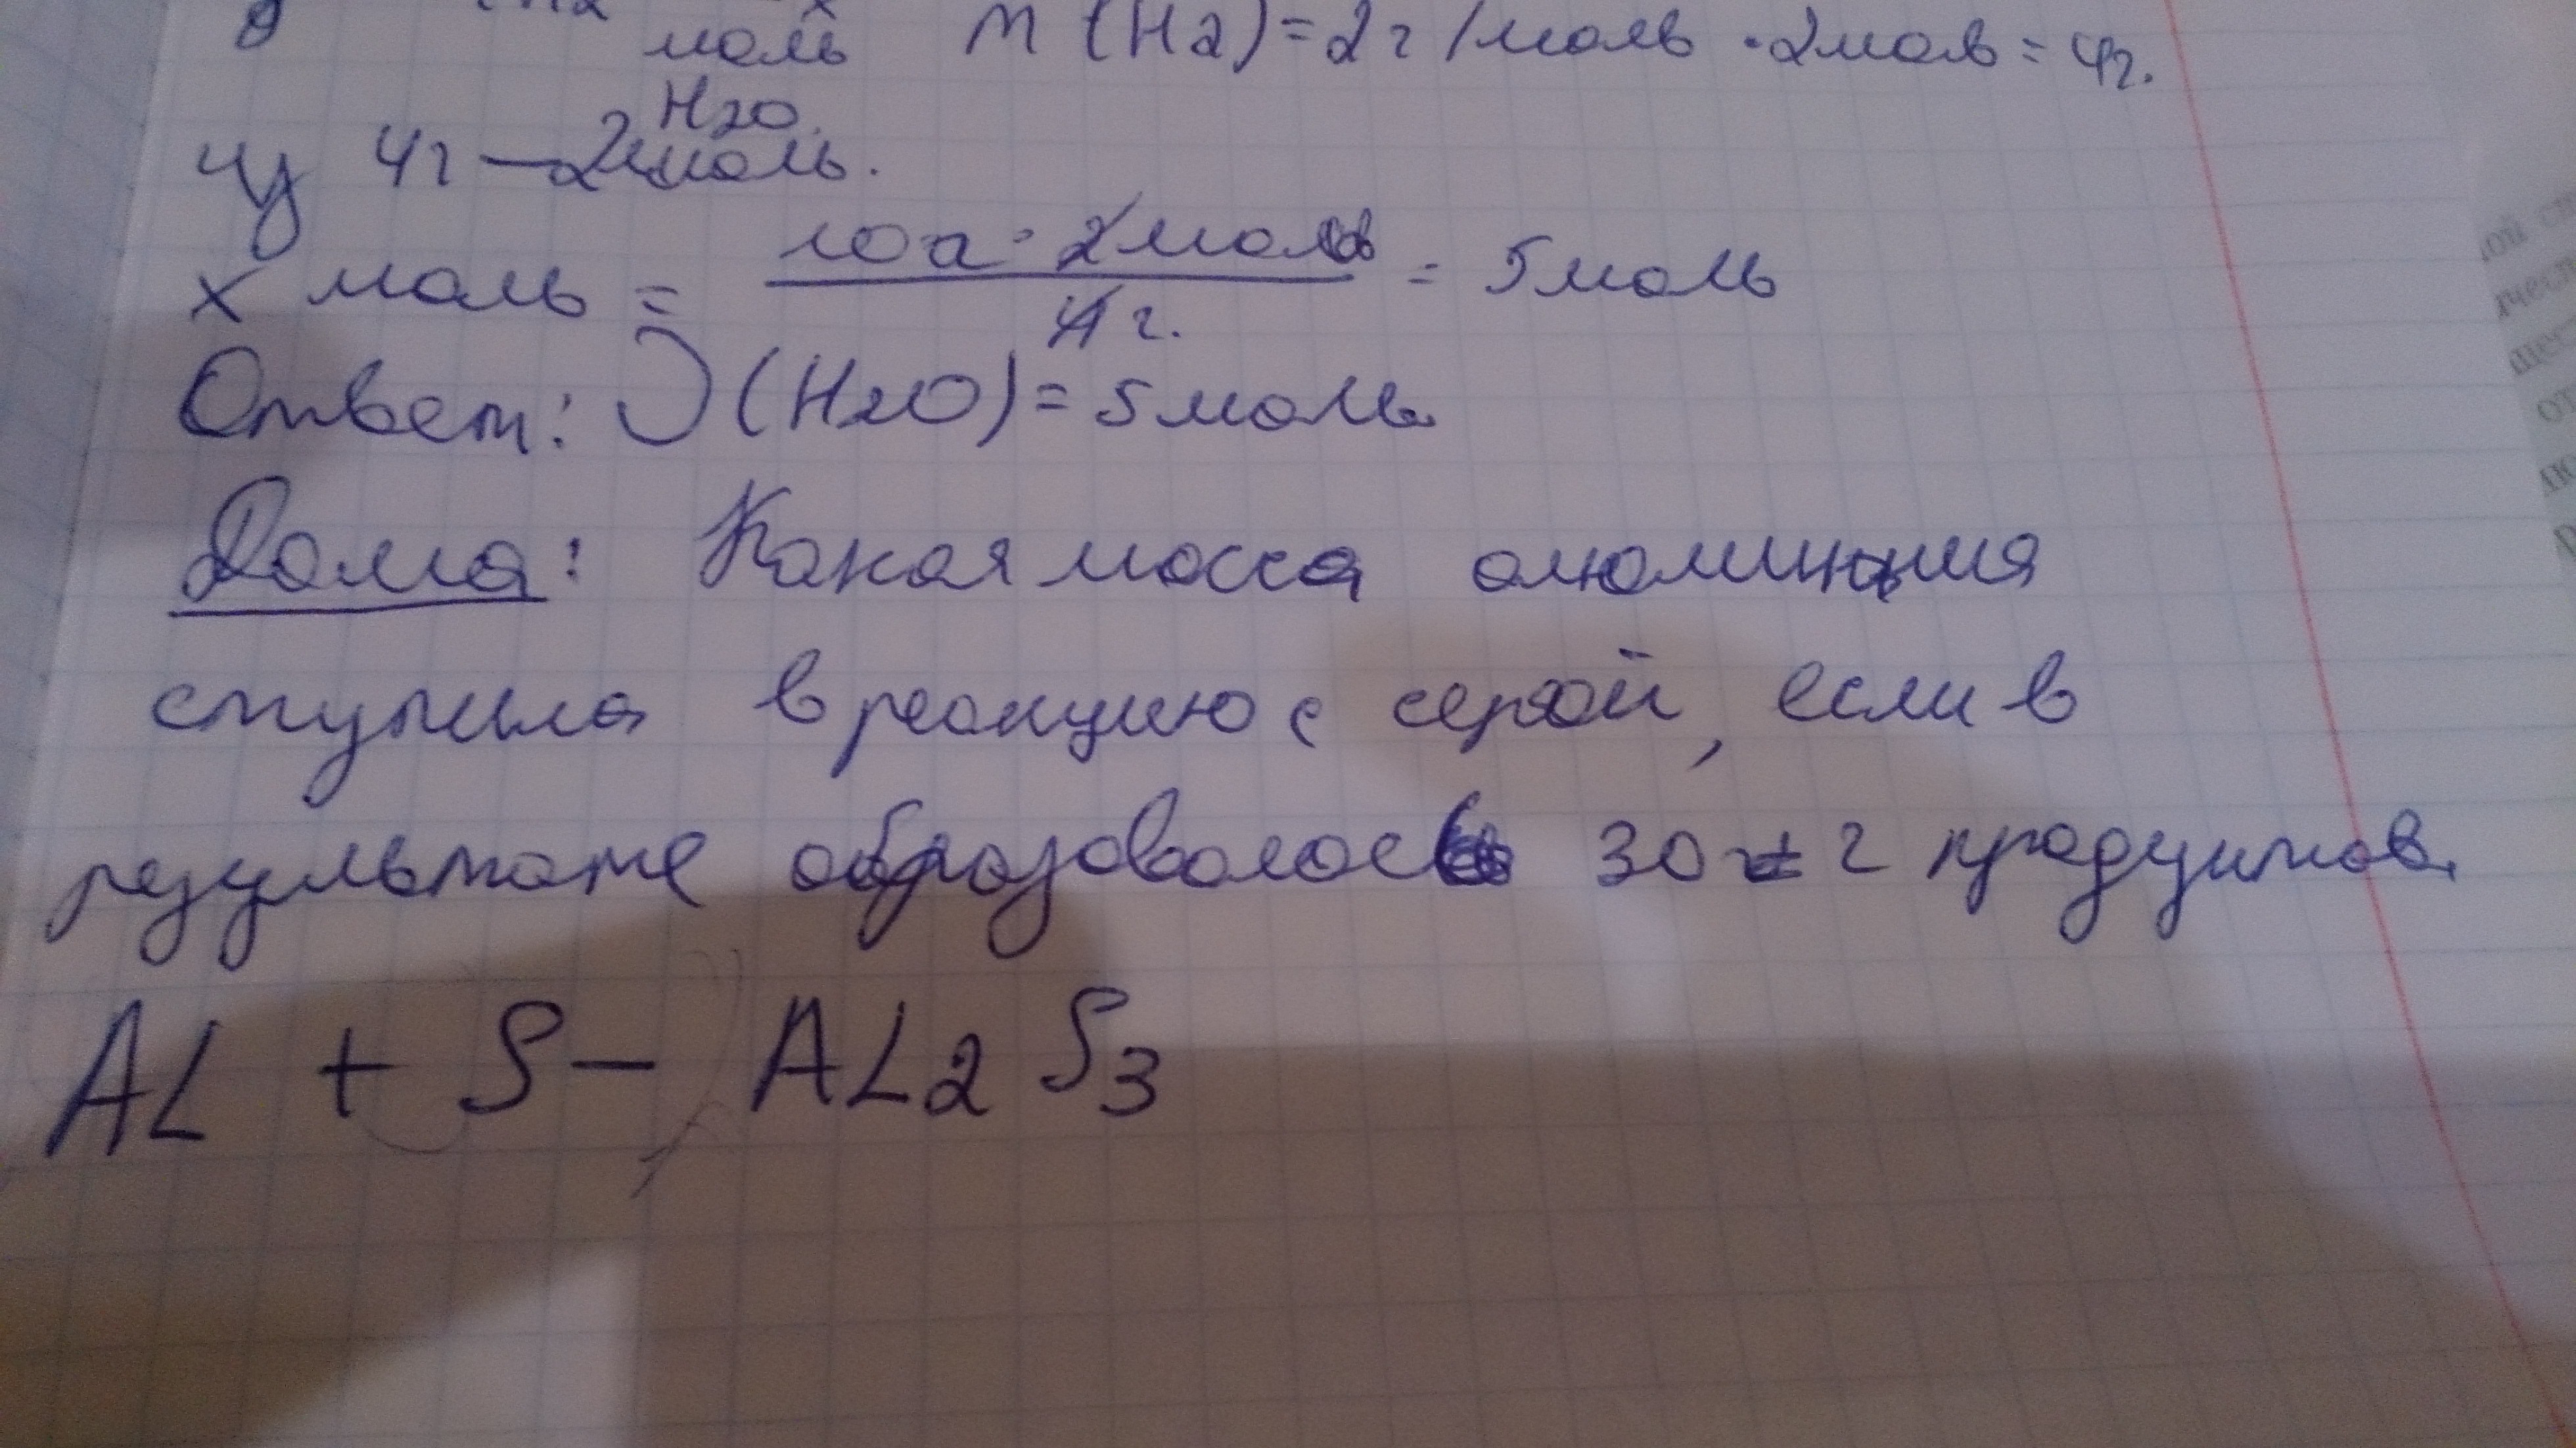 моль m (H2)=2г/моль · 2моль = 4г.
H2O
4) 4г — 2моль.
x моль = 10г · 2моль / 4г. = 5моль
Ответ: (H2O) = 5моль
Дома: Какая масса алюминия
ступила в реакцию с серой, если в
результате образовалось 30 г продуктов.
AL + S — AL2 S3